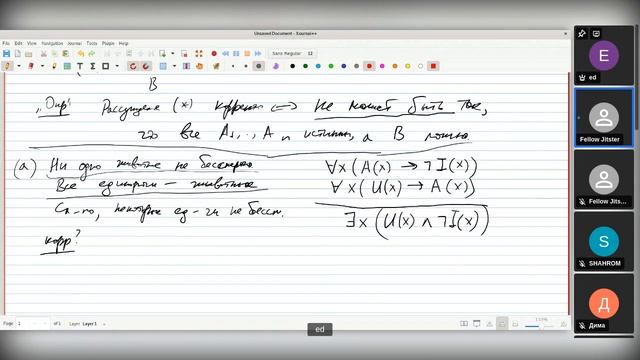 Unsaved Document - Xournal++
File Edit View Navigation Journal Tools Plugin Help
Sans Regular 12
B
„Опр“ Рассуждение (*) корректно ⟺ не может быть так,
что все A₁, .., Aₙ истинны, а B ложно
(a) Ни одно животное не бессмертно
∀x (A(x) → ¬I(x))
Все единороги — животные
∀x (U(x) → A(x))
Сл-но, некоторые ед-ги не бессм.
∃x (U(x) ∧ ¬I(x))
корр?
Page 2 of 1 Layer Layer 1
ed
E
ed
Fellow Jitster
Fellow Jits...
S
SHAHROM
Д
Дима